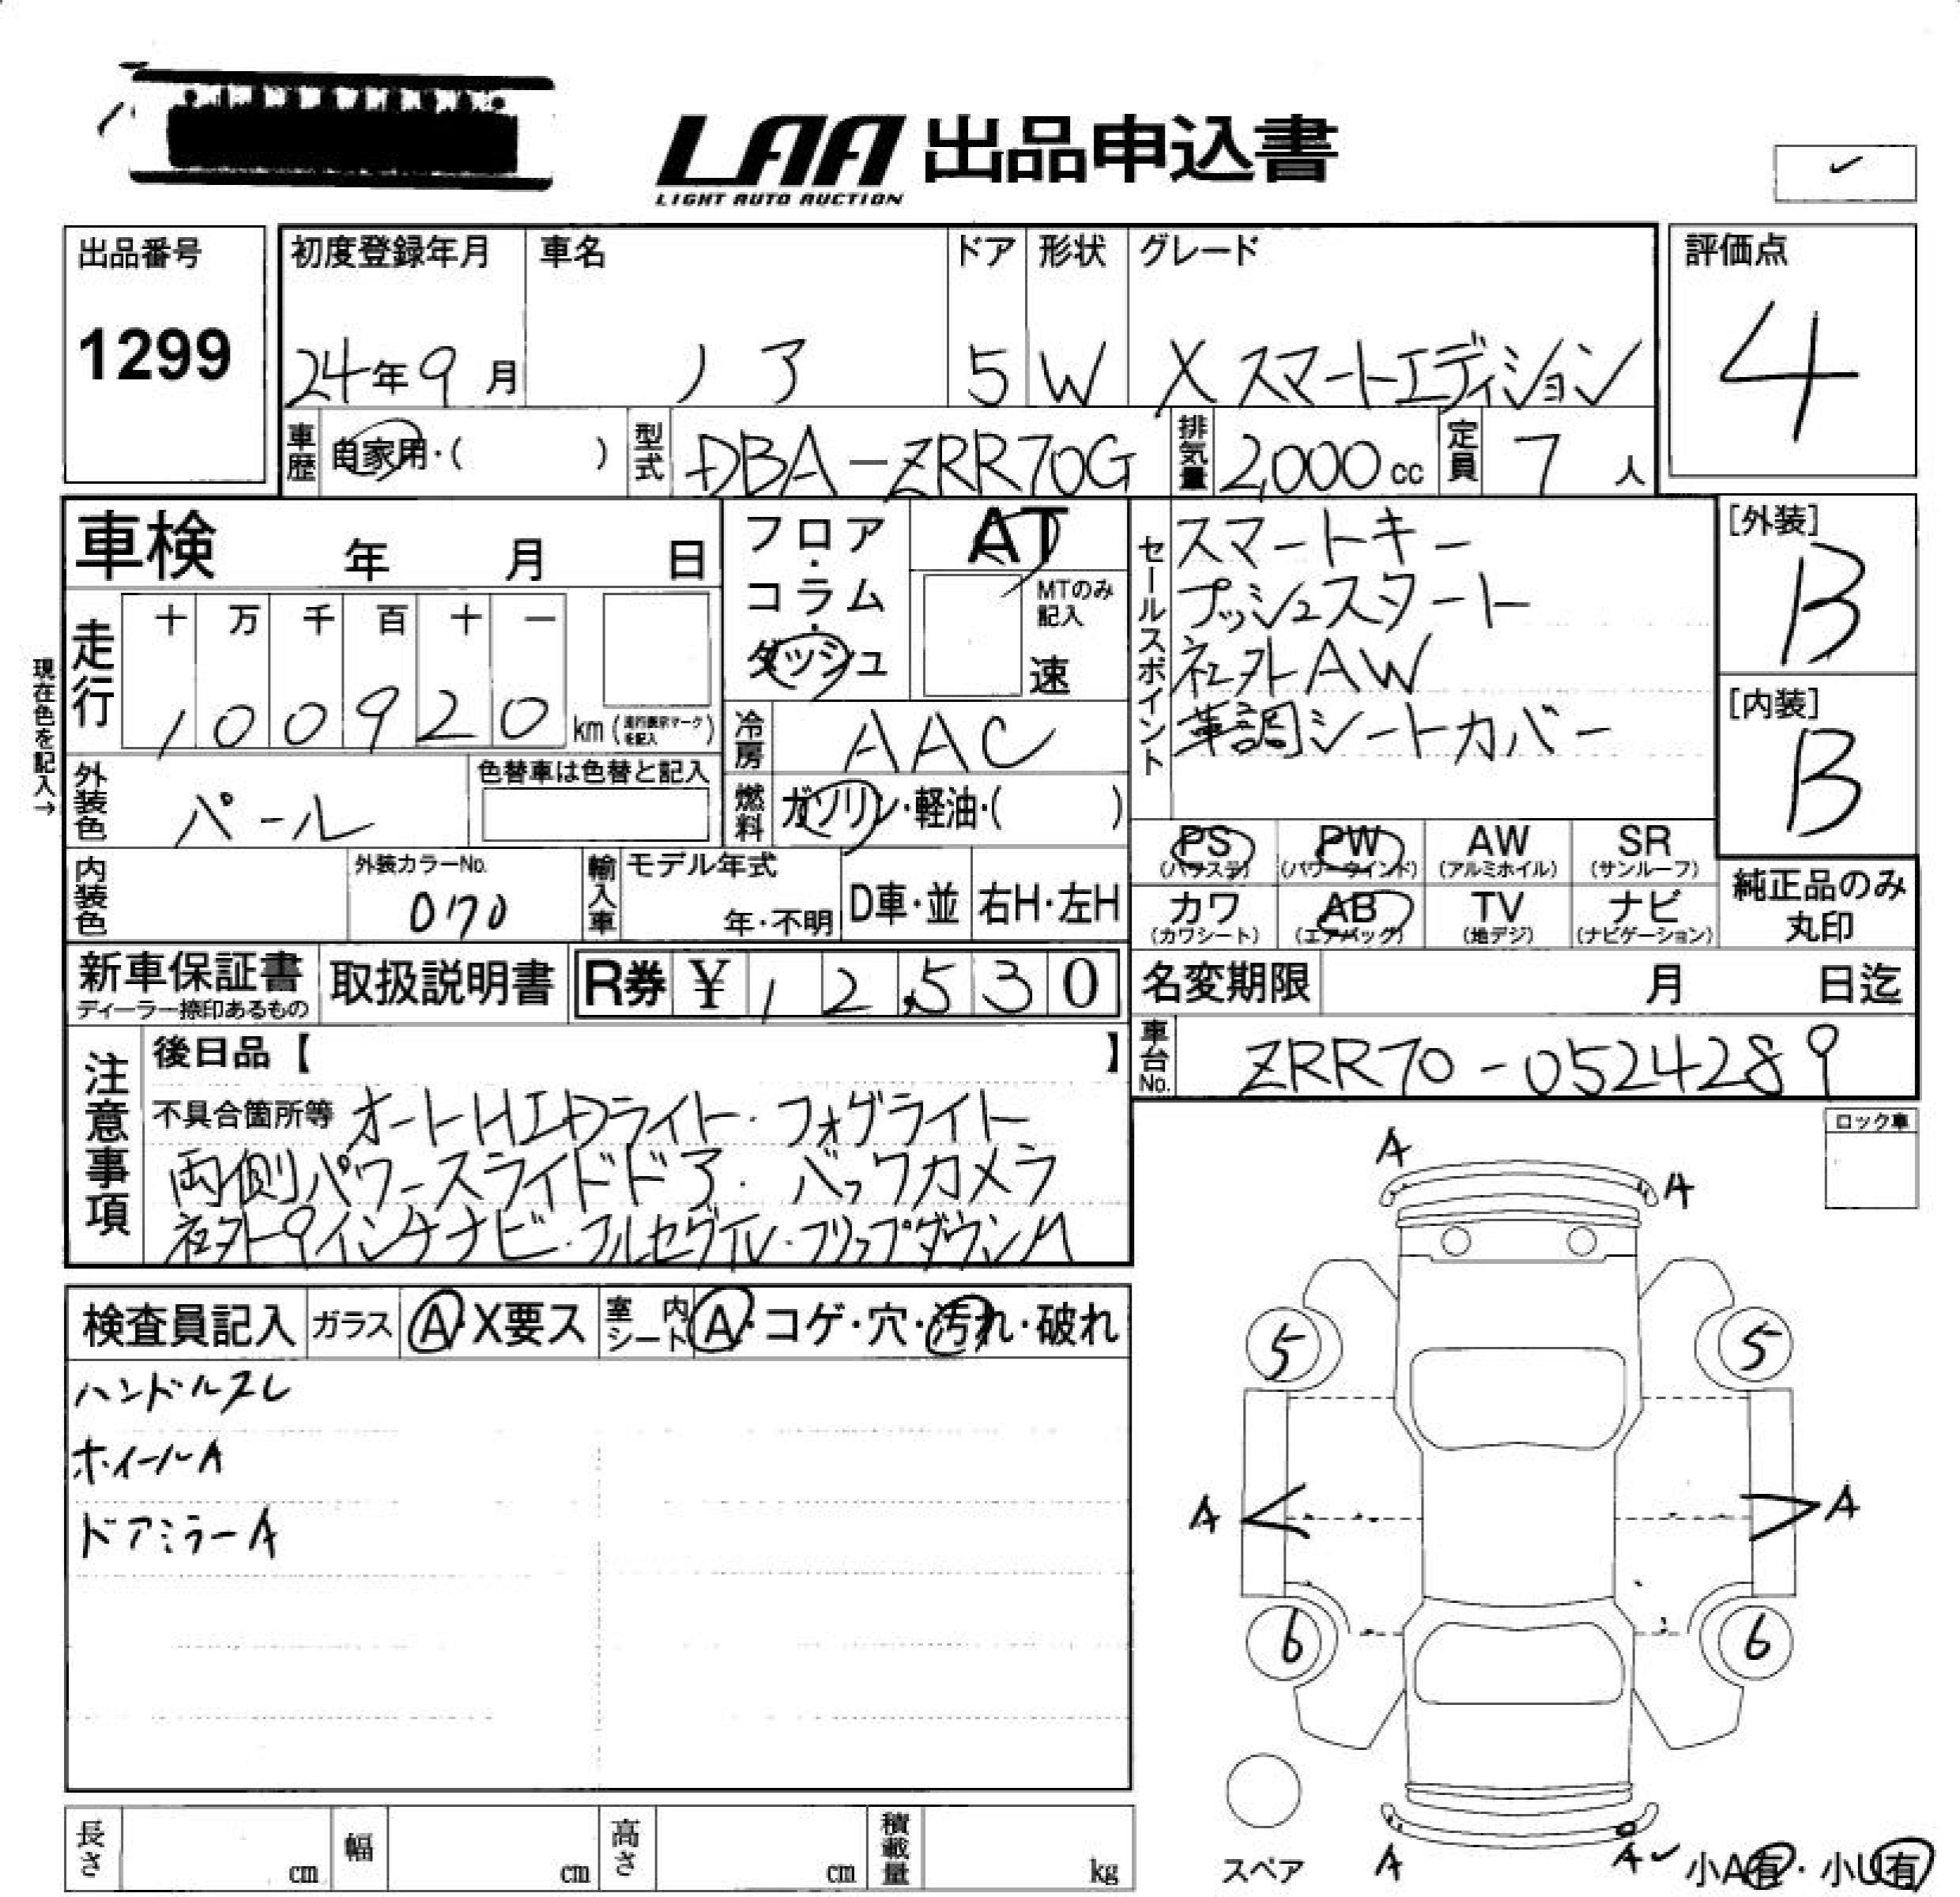 LAA 出品申込書
LIGHT AUTO AUCTION
出品番号
1299
初度登録年月 車名 ドア 形状 グレード
24年9月 ノア 5 W X スマートエディション
評価点
4
車歴 自家用・( ) 型式 DBA-ZRR70G 排気量 2,000cc 定員 7人
車検 年 月 日
フロア・コラム・ダッシュ
AT
MTのみ記入
速
セールスポイント
スマートキー
プッシュスタート
社外AW
革調シートカバー
[外装]
B
[内装]
B
現在色を記入→
走行 十 万 千 百 十 一
1 0 0 9 2 0 km (走行表示マークを記入)
冷房 AAC
外装色 パール 色替車は色替と記入
燃料 ガソリン・軽油・( )
PS (パワステ) PW (パワーウインド) AW (アルミホイル) SR (サンルーフ)
カワ (カワシート) AB (エアバッグ) TV (地デジ) ナビ (ナビゲーション)
純正品のみ丸印
内装色 外装カラーNo. 070 輸入車 モデル年式 年・不明 D車・並 右H・左H
新車保証書 ディーラー捺印あるもの 取扱説明書 R券 ¥ 12,530
名変期限 月 日迄
車台No. ZRR70-0524289
注意事項
後日品【 】
不具合箇所等 オートHIDライト・フォグライト
両側パワースライドドア・バックカメラ
社外9インチナビ・フルセグTV・フリップダウンM
ロック車
検査員記入 ガラス A・X要ス 室内シート A・コゲ・穴・汚れ・破れ
ハンドルスレ
ホイールA
ドアミラーA
A
A
5 5
A A
6 6
スペア
A A✓
小A有・小U有
長さ cm 幅 cm 高さ cm 積載量 kg